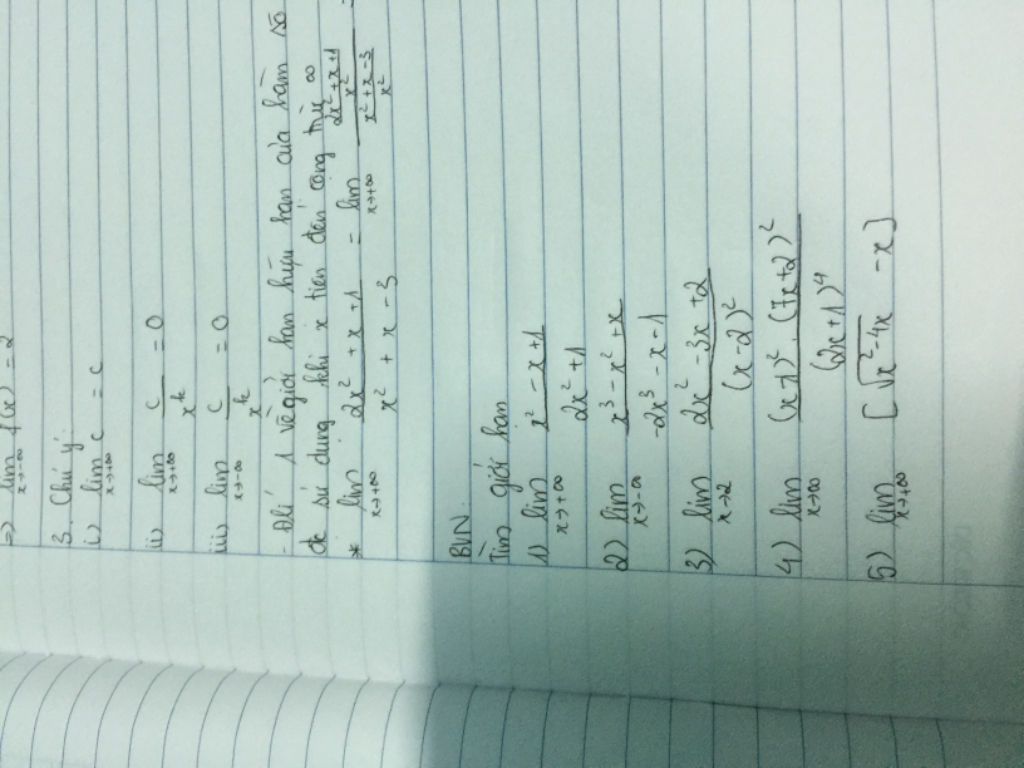 => lim f(x) = 2
x→-∞
3. Chú ý:
i) lim c = c
x→+∞
ii) lim c/x^k = 0
x→+∞
iii) lim c/x^k = 0
x→-∞
- Đlí 1 về giới hạn hữu hạn của hàm số
sử dụng khi x tiến đến cộng trừ ∞
* lim (2x² + x + 1)/(x² + x - 3) = lim ((2x² + x + 1)/x²)/((x² + x - 3)/x²)
x→+∞ x→+∞
BVN.
Tìm giới hạn
1) lim (x² - x + 1)/(2x² + 1)
x→+∞
2) lim (x³ - x² + x)/(-2x³ - x - 1)
x→-∞
3) lim (2x² - 3x + 2)/(x - 2)²
x→2
4) lim (7x+2)²/(2x+1)⁴
x→∞
5) lim [√(x² - 4x) - x]
x→+∞